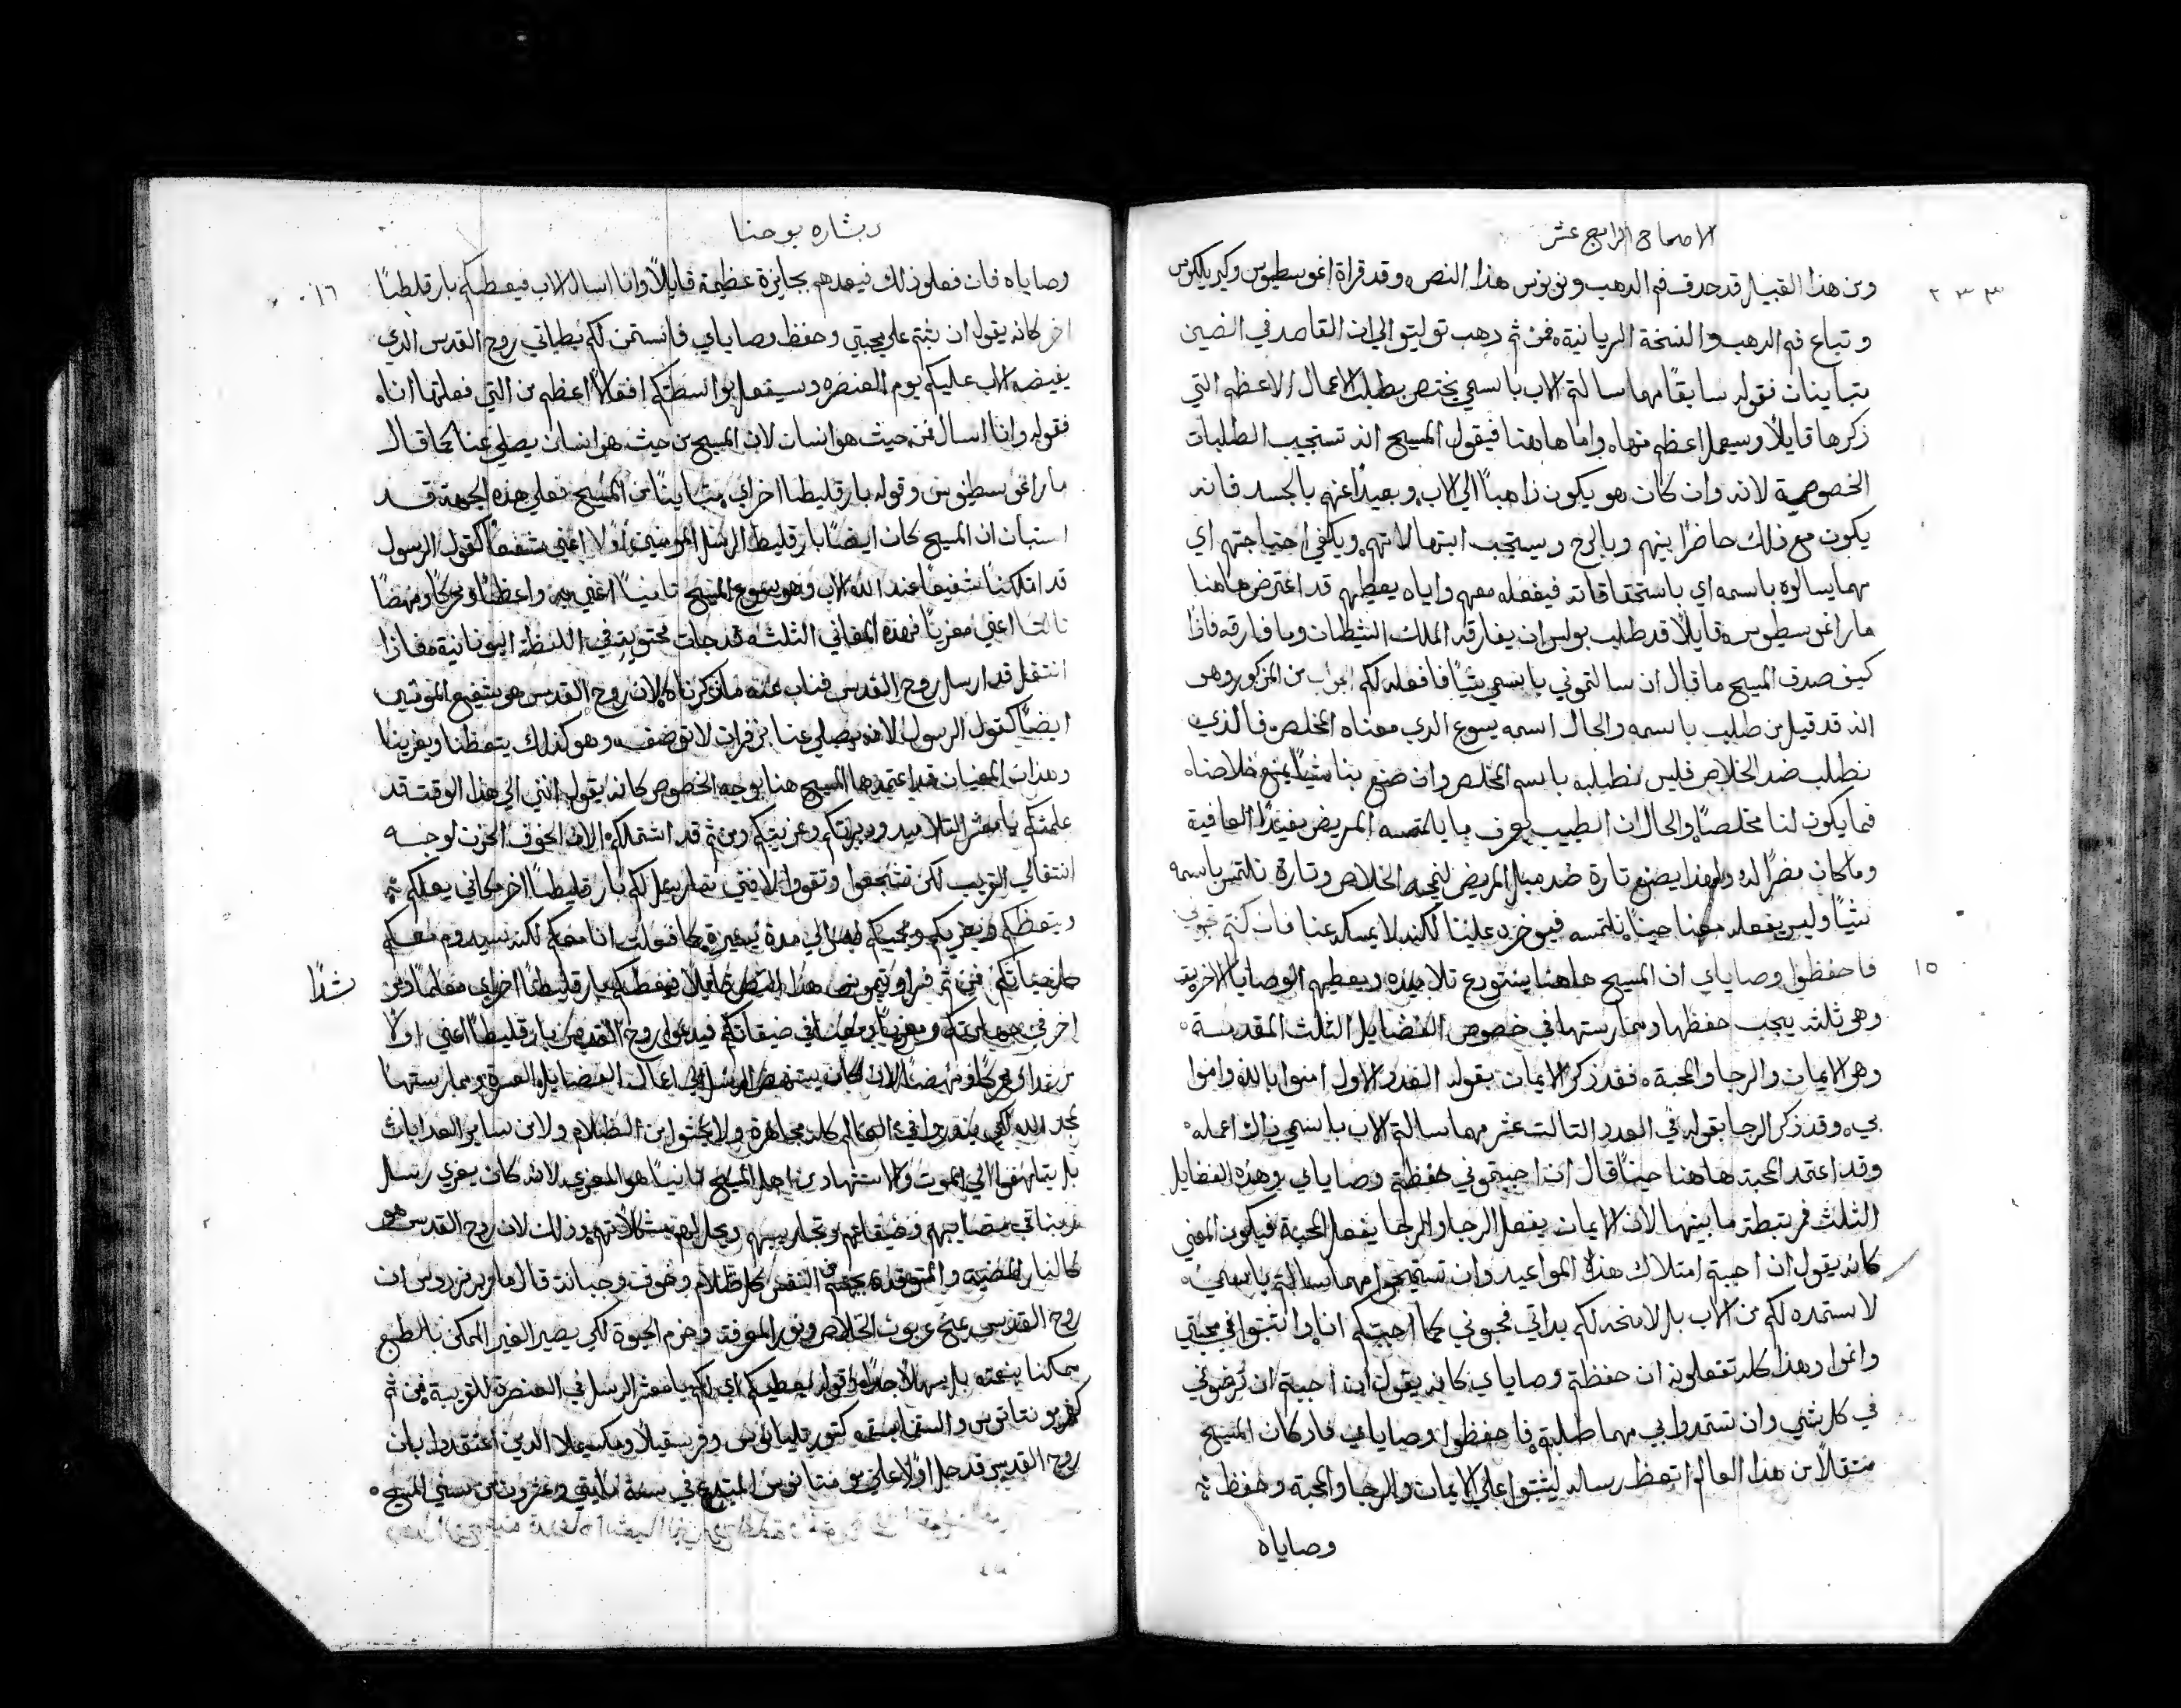 الاصحاح الرابع عشر
٢٣٣
ومن هذا القبيل قد حدف فم الدهب ونونوس هذا النص وقد قراة اغوسطينوس وكيريلكوس
وتباع فم الدهب والنسخة الريانية فمن ثم دهب توليتو الي ان القاصد في النصين
متباينات فقوله سابقًا مهما سالتم الاب باسمي يختص بطلبات الاعمال الاعظم التي
ذكرها قايلًا وسيعمل اعظم منها واما هاهنا فيقول المسيح انه تستجيب الطلبات
الخصوصية لانه وان كان هو يكون ذاهبًا الي الاب وبعيدًا عنهم بالجسد فانه
يكون مع ذلك حاضرًا بينهم وبالروح وسيتجب ابتهالاتهم ويكفي احتياجتهم اي
مهما يسالوه باسمه اي باستحقاقاته فيفعله معهم واياه يعطيهم قد اعترض هاهنا
مار اغوسطينوس قايلًا قد طلب بولس ان يفارقه الملاك الشيطان وما فارقه فاذًا
كيف صدق المسيح ما قال ان سالتموني باسمي شيًا فافعله لكم اجواب من المزكور وهو
انه قد قيل من طلب باسمه والحال اسمه يسوع الدي معناه المخلص فالذي
نطلب ضد الخلاص فليس نطلبه باسم المخلص وان صنع بنا شيًا يمنع خلاصنا
فما يكون لنا مخلصًا والحال ان الطبيب يعرف ما يلتمسه المريض مفيدًا للعافية
وما كان مضرًا له ولهذا يصنع تارة ضد ميل المريض لنجه الخلاص وتارة نلتمس باسمه
شيًا وليس يفعله معنا حينًا نلتمسه فيوخره علينا لكنه لا يمسكه عنا فان كنتم تحبوني
١٥
فاحفظوا وصاياي ان المسيح هاهنا يستودع تلاميده ويعطيهم الوصايا الاخرية
وهي ثلثه يجب حفظها وممارستها في خصوص الفضايل الثلث المقدسة
وهو الايمان والرجا والمحبة فقد ذكر الايمان بقوله العدد الاول امنوا بالله وامنوا
بي وقد ذكر الرجا بقوله في العدد التالت عشر مهما سالتم الاب باسمي ذلك اعمله
وقد اعتمد المحبة هاهنا حينًا قال ان احببتموني حفظتم وصاياي وهذه الفضايل
الثلث مرتبطة ما بينها لان الايمان يفعل الرجا والرجا يفعل المحبة فيكون المعني
كانه يقول ان احببتم امتلاك هذه المواعيد وان تستميحوا مهما سالتم باسمي
لاستمده لكم من الاب بل لامنحه لكم بداتي فحبوني كما احببتكم انا واثبتوا في محبتي
وانموا وهذا كله تفعلونه ان حفظتم وصاياي كانه يقول ان احببتم ان ترضوني
في كل شي وان تستمدوا بي مهما طلبتم فاحفظوا وصاياي فاد كان المسيح
منتقلًا من هذا العالم اتعظ رساله ليثبتوا علي الايمان والرجا والمحبة وحفظ
وصاياه
بشاره يوحنا
١٦
وصاياه فان فعلو ذلك فيعدهم بجايزة عظيمة قايلًا وانا اسال الاب فيعطيكم بارقليطًا
اخر كانه يقول ان ثبتم علي محبتي وحفظ وصاياي فانستمن لكم بطلباتي روح القدس الذي
يفيضه الاب عليكم يوم العنصره وسيفعل بواسطتكم افعالًا اعظم من التي فعلتها انا
فقوله وانا اسال فمن حيث هو انسان لان المسيح من حيث هو انسان يصلي عنا كما قال
مار اغوسطينوس وقوله بارقليطا اخر اي متباينًا من المسيح فعلي هذه الجهة قد
استبان ان المسيح كان ايضًا بارقليط الرسل المومنين اولًا اعني متشفعًا كقول الرسول
قد امتلكنا شفيعًا عند الله الاب وهو يسوع المسيح ثانيًا اعني به واعظًا ومحركًا ومنهضًا
ثالثا اعني معزيًا فهذه المعاني الثلثه قد جات محتوية في اللفظة اليونانية فاذا
انتقل قد ارسل روح القدس فناب عنه ما ذكرناه لان روح القدس هو شفيع المومنين
ايضًا كقول الرسول لانه يصلي عنا بزفرات لا توصف وهو كذلك يتعظنا ويعزينا
وهذان المعنيان قد اعتمدها المسيح هنا بوجه الخصوص كانه يقول انني الي هذا الوقت قد
علمتكم يا معشر التلاميد ودبرتكم وعزيتكم ومن ثم قد اشتملكم الان الخوف الحزن لوجه
انتقالي القريب لكن تشجعوا وتقووا لانني سارسل لكم بارقليطًا اخر مكاني يعلمكم
ويتعظكم ويعزيكم ويحييكم ليس الي مدة يسيرة كما فعلت انا معكم لكنه سيدوم معكم
كل حياتكم فمن ثم قد اوتيموس هذا النص قايلًا فيعطيكم بارقليطًا اخر اي معلمًا ومرشدًا
اخر في حمايتكم ومعزيًا ومعينًا في ضيقاتكم فيدعوا روح القدس بارقليطًا اعني اولًا
مرشدًا ومحركًا ومنهضًا لانه كان يستنهض الرسل الي اعمال الفضايل العسرة وممارستها
لمجد الله لكي ينذروا في العالم كله مجاهرة ولا يخشوا من الظلام ولا من ساير العدابات
بل يتلهفوا الي الموت والاستشهاد من اجل المسيح ثانيًا هو المعزي لانه كان يعزي رسل
ربنا في مصايبهم وضيقاتهم وتجاريبهم ويحل لهم مشكلاتهم وذلك لان روح القدس هو
كالنار المضية والمتوقدة يجهي النفس كل ظلام وخوف وجبانه قال ماريرنردوس ان
روح القدس يمنح عربون الخلاص ونور المعرفة وحزم الحيوة لكي يصير الغير الممكن بالطبع
ممكنا بنعمته بل سهلًا جدًا وقوله يعطيكم اي لكم يا معشر الرسل في العنصرة القريبة فمن ثم
كفر مونتانوس واتباعه كتورتليانوس وفريسقيلا ومكسيملا الدين اعتقدوا بان
روح القدس قد حل اولًا علي مونتانوس المبتدع في سنة مايتي وعشرون من سني المسيح